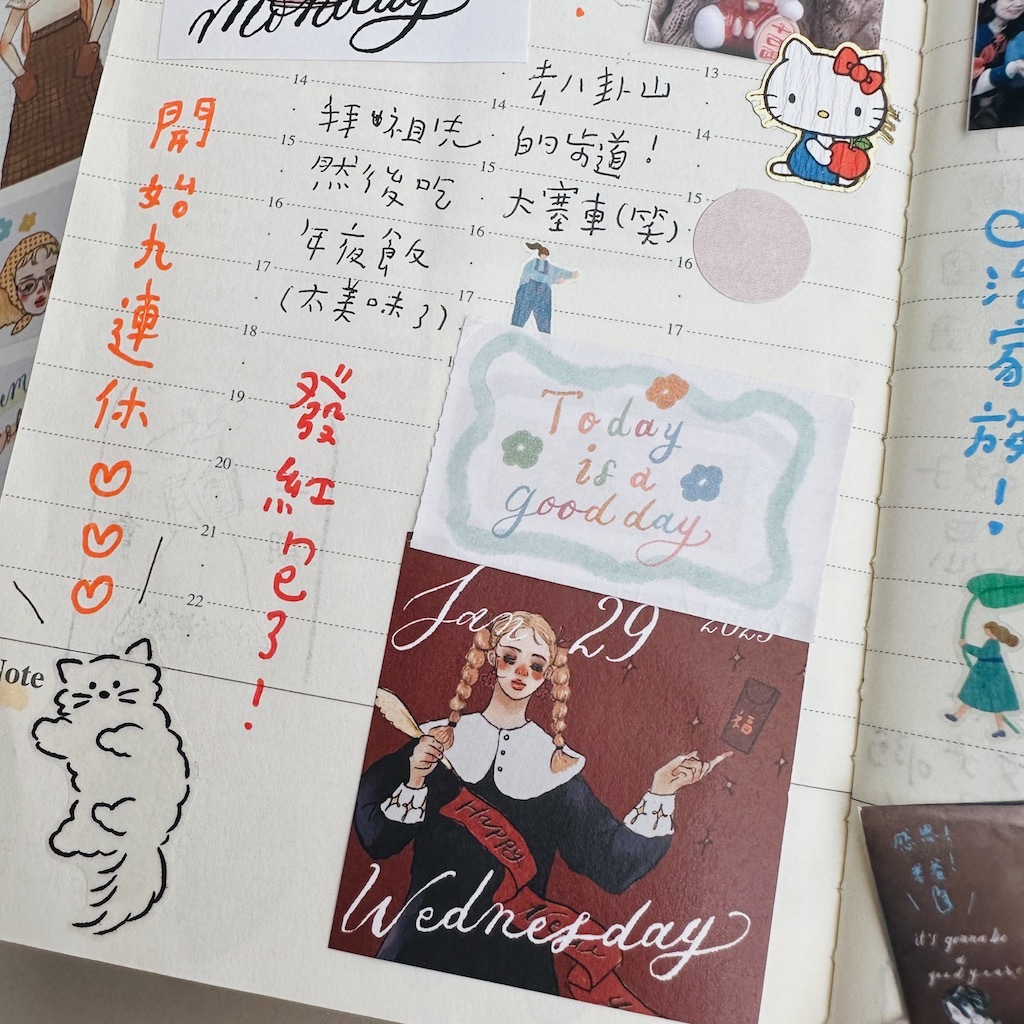 Monday
開始九連休♡♡♡
14
15
16
17
18
19
20
21
22
拜祖先
然後吃
年夜飯
(太美味了)
發紅包了!
14
15
16
17
去八卦山
的步道!
大塞車(笑)
13
14
15
16
17
Today
is a
good day
Jan 29 2025
福
Happy
Wednesday
Note
治家族!
感恩!
it's gonna be
a
good year